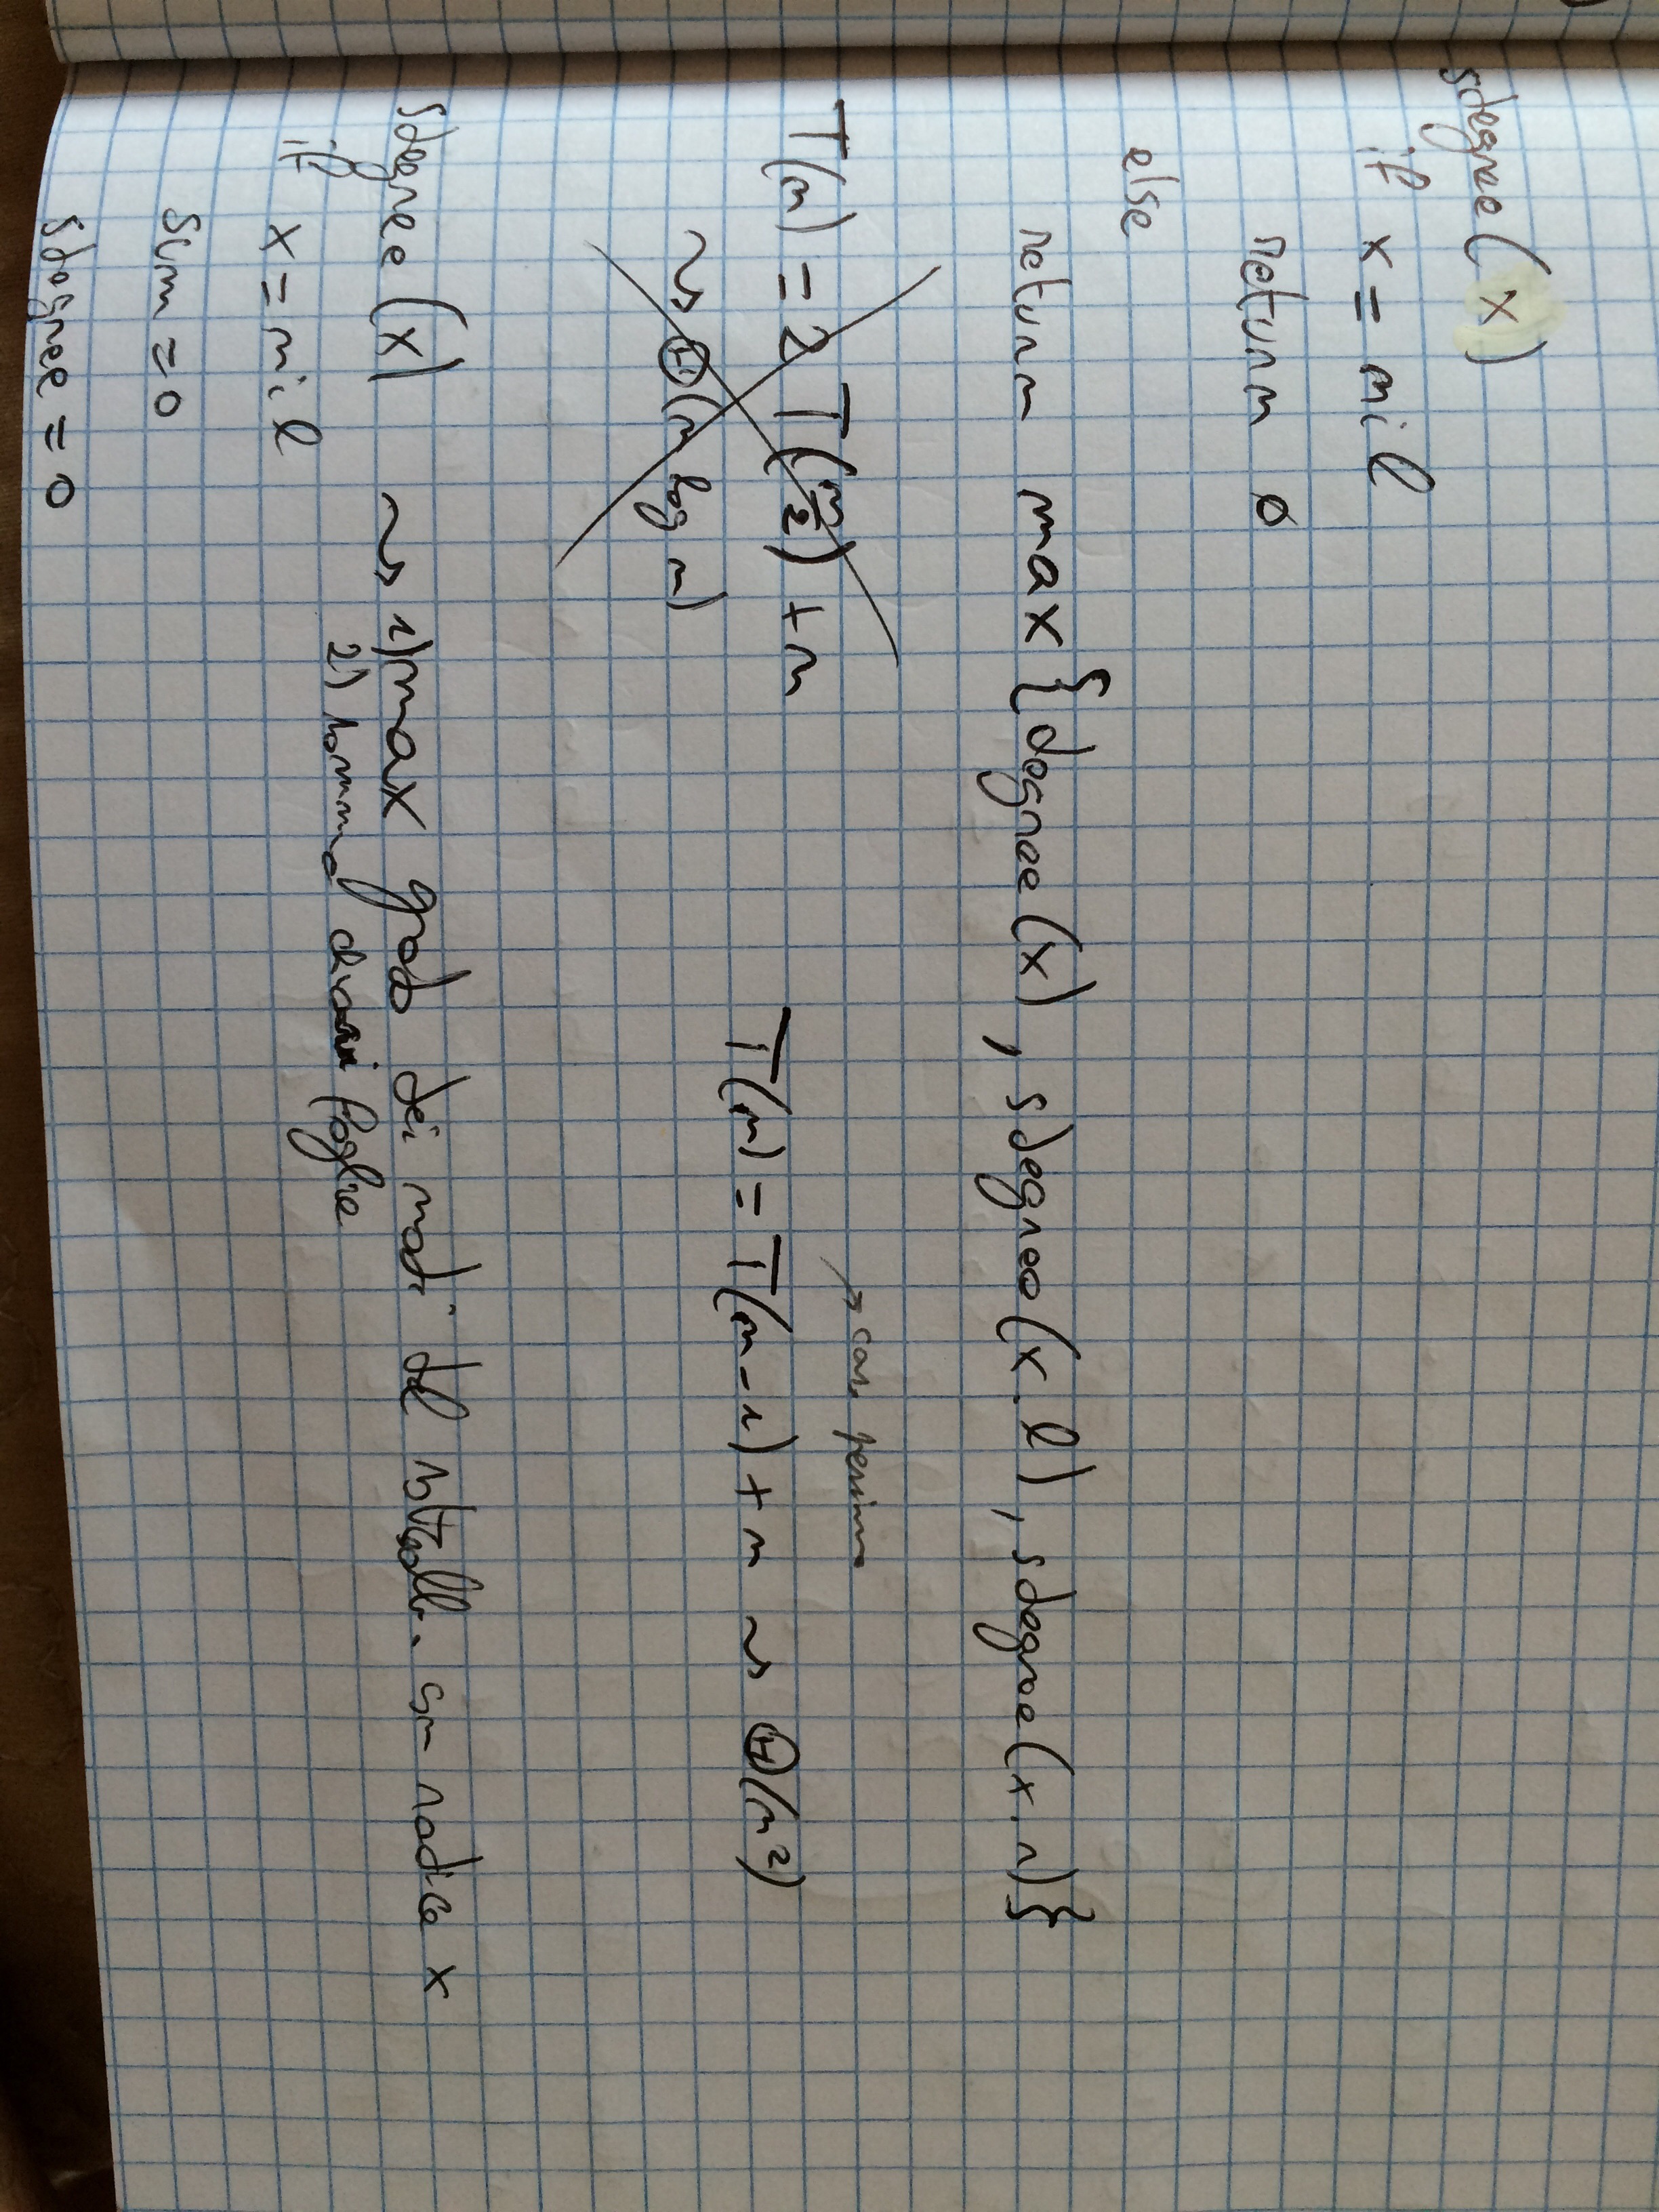 sdegree(x)
if x = nil
return 0
else
return max{degree(x), sdegree(x.l), sdegree(x.r)}
→ caso pessimo
T(n) = 2 T(n/2) + n
T(n) = T(n-1) + n ⇝ Θ(n²)
⇝ Θ(n log n)
sdegree(x) ⇝ 1) max grado dei nodi del sottoalb. con radice x
2) somma chiavi foglie
if x = nil
sum = 0
sdegree = 0